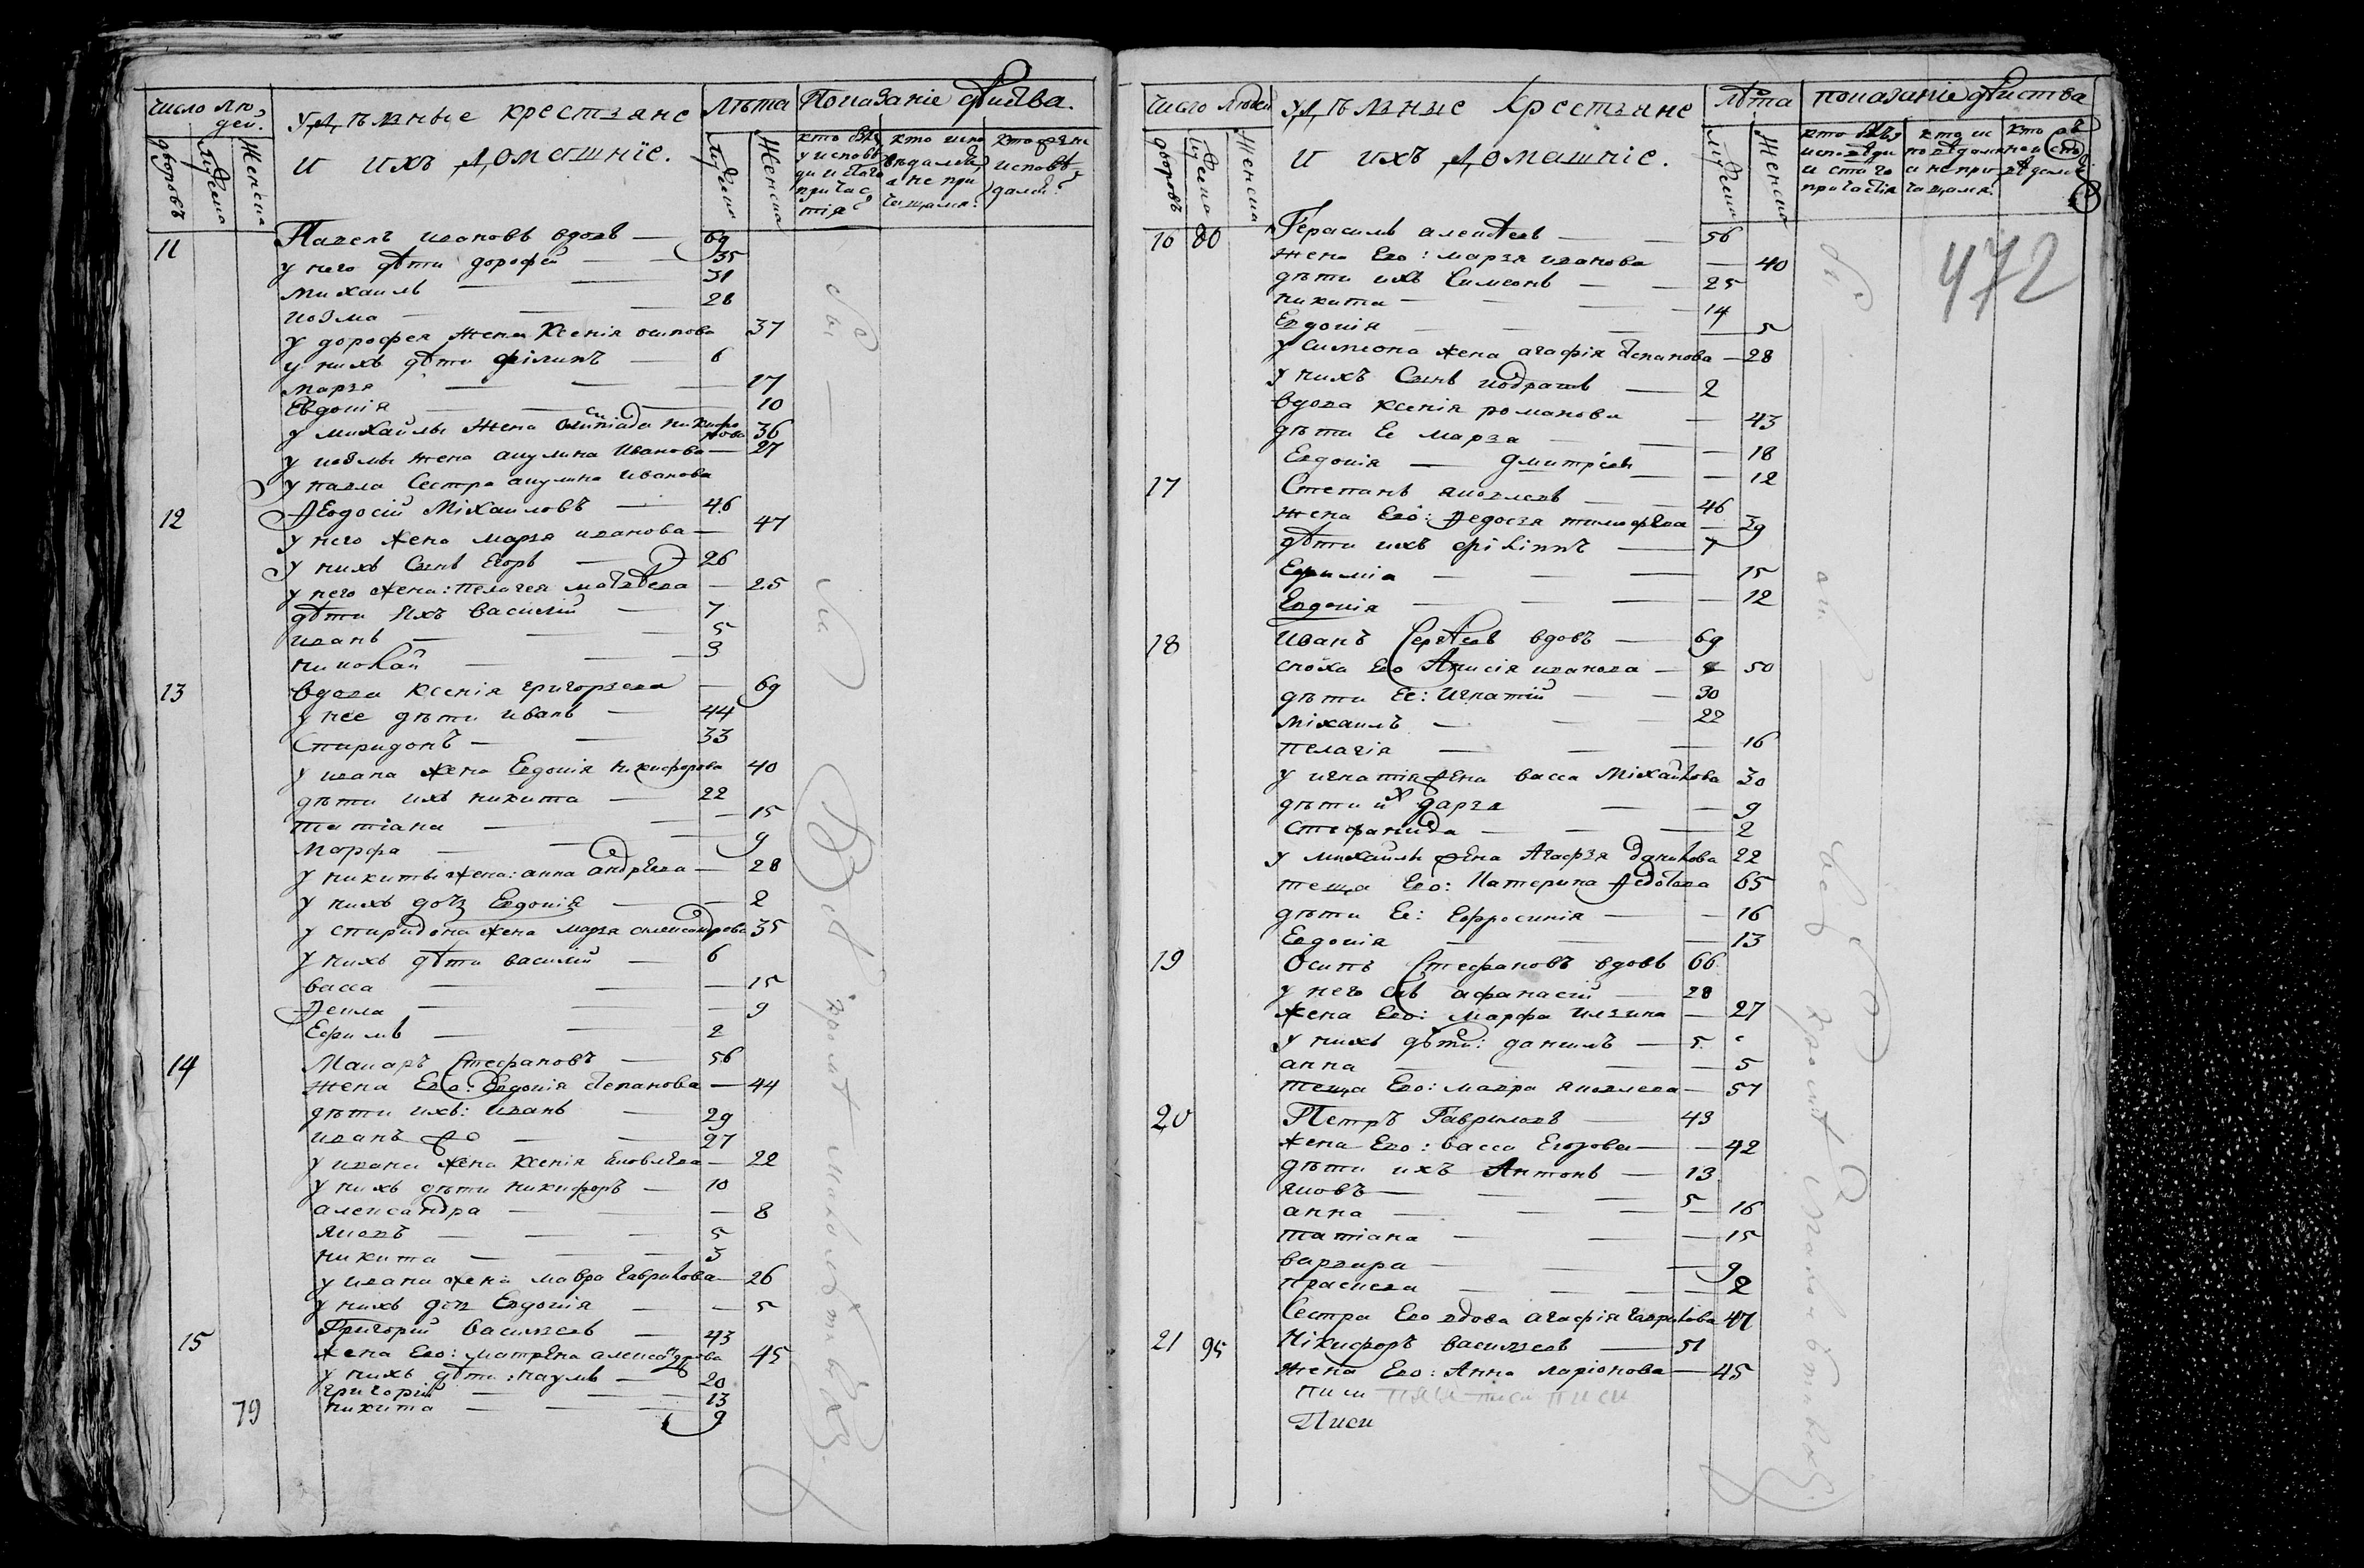 Число людей.
Удѣльные крестьяне
и ихъ домашніе.
Лѣта
Показаніе дѣйства.
дворовъ
мужеска
женска
мужска
женска
11 Павелъ ивановъ вдовъ — 69
у него дѣти дорофей — 35
Михаилъ — 31
козма — 28
у дорофея жена Ксенія осипова 37
у нихъ дѣти филипъ — 6
марья — 17
Евдокія — 10
у михайлы жена Олимпіада никифорова 36
у козмы жена акулина Иванова — 27
у павла Сестра акулина иванова
12 Ѳеодосій Міхаиловъ — 46
у него жена марья иванова — 47
у нихъ Сынъ Егоръ — 26
у него жена: пелагея матвѣева — 25
дѣти ихъ василій — 7
иванъ — 5
николай — 3
13 вдова ксенія григорьева — 69
у нее дѣти иванъ — 44
Спиридонъ — 33
у ивана жена Евдокія никифорова 40
дѣти ихъ никита — 22
татіана — 15
марфа — 9
у никиты жена: анна андрѣева — 28
у нихъ дочь Евдокія — 2
у спиридона жена марья александрова 35
у нихъ дѣти василій — 6
васса — 15
Ѳекла — 9
Ефимъ — 2
14 Макаръ Стефановъ — 56
жена Его: Евдокія степанова — 44
дѣти ихъ: иванъ — 29
иванъ — 27
у ивана жена ксенія яковлева — 22
у нихъ дѣти никифоръ — 10
александра — 8
яковъ — 5
никита — 3
у ивана жена мавра гаврилова — 26
у нихъ дочь Евдокія — 5
15 Григорій васильевъ — 43
жена Его: матрена александрова 45
у нихъ дѣти: наумъ — 20
григорій — 13
79 никита — 9
Число людей
Удѣльные крестьяне
и ихъ домашніе.
лѣта
показаніе дѣйства
дворовъ
мужеска
женска
мужска
женска
472
16 80 Герасимъ алексѣевъ — 56
жена Его: марья иванова — 40
дѣти ихъ Симеонъ — 25
никита — 14
Евдокія — 5
у симиона жена агафія степанова — 28
у нихъ Сынъ кодратъ — 2
вдова ксенія романова — 43
дѣти Ее марья — 18
Евдокія — дмитріевы — 12
17 Степанъ яковлевъ — 46
жена Его: Ѳедосья тимофѣева — 39
дѣти ихъ филиппъ — 7
Ефимія — 15
Евдокія — 12
18 иванъ Сергѣевъ вдовъ — 69
сноха Его Анисія иванова — 50
дѣти Ее: Игнатій — 30
міхаилъ — 22
пелагія — 16
у игнатія жена васса Міхайлова 30
дѣти их дарья — 9
стефанида — 2
у михайлы жена Агафья данилова 22
теща Его: Катерина Ѳедотова 65
дѣти Ее: Ефросинія — 16
Евдокія — 13
19 Осипъ Стефановъ вдовъ 66
у него сынъ афанасій — 28
жена Его: марфа ильина — 27
у нихъ дѣти: данилъ — 5
анна — 5
теща Его: мавра яковлева — 51
20 Петръ Гавриловъ — 43
жена Его: васса Егорова — 42
дѣти ихъ Антонъ — 13
яковъ — 5
анна — 16
татіана — 15
варвара — 9
праскева — 2
Сестра Его вдова агафія гаврилова 47
21 95 Нікифоръ васильевъ — 51
жена Его: Анна ларіонова — 45
Писи